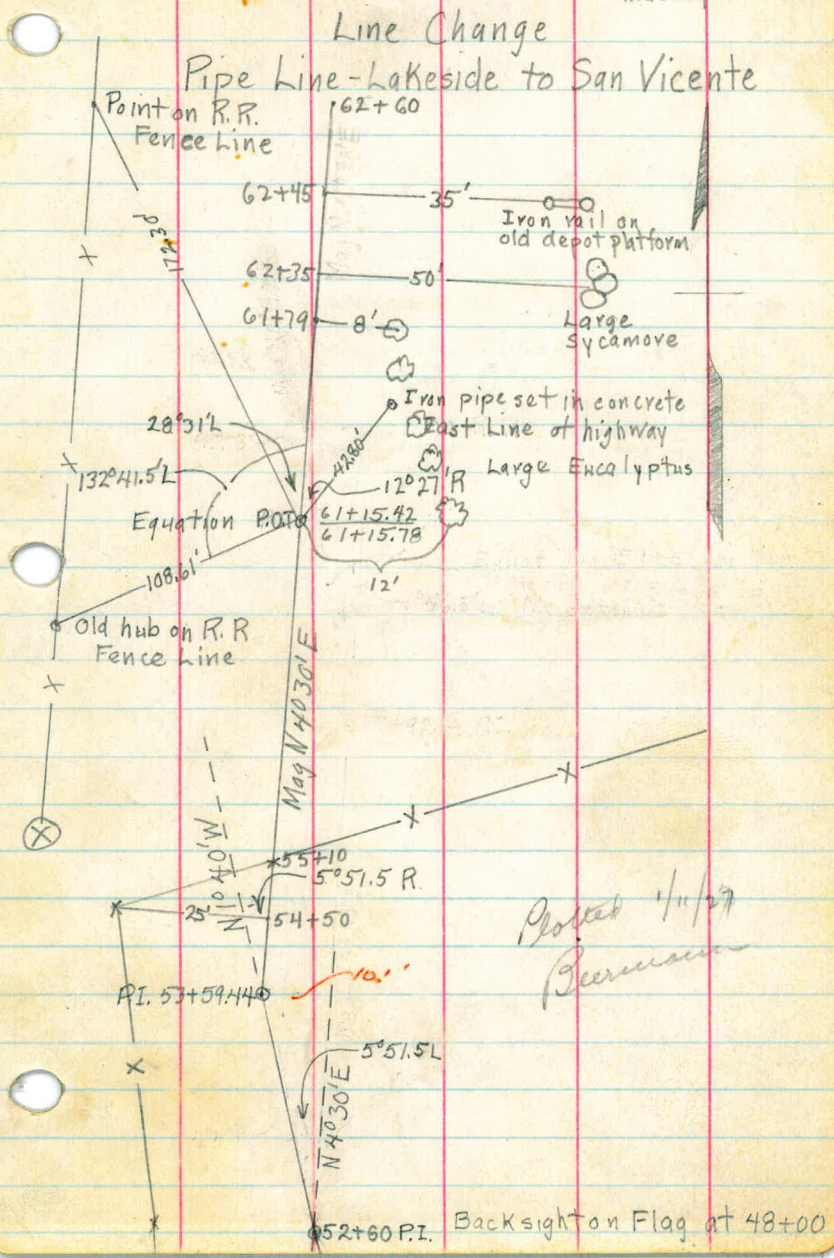 Line Change
Pipe Line-Lakeside to San Vicente
Point on R.R.
Fence Line
62+60
62+45
35'
Iron rail on
old depot platform
172.30'
62+35
50'
Large
Sycamore
61+79
8'
Iron pipe set in concrete
East Line of highway
Large Eucalyptus
28°31'L
42.80'
132°41.5'L
12°27'R
Equation
P.O.T.
61+15.42
61+15.78
12'
108.61'
Old hub on R.R
Fence Line
Mag N 4°30' E
N 1°40'W
55+10
5°51.5 R.
25'
54+50
Plotted 1/11/27
Beermann
P.I. 53+59.44
10.'
5°51.5L
N 4°30'E
52+60 P.I.
Backsight on Flag at 48+00